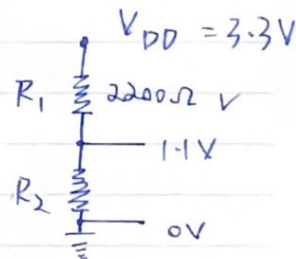 V_DD = 3.3V
R₁ 2200Ω V
1.1V
R₂
0V